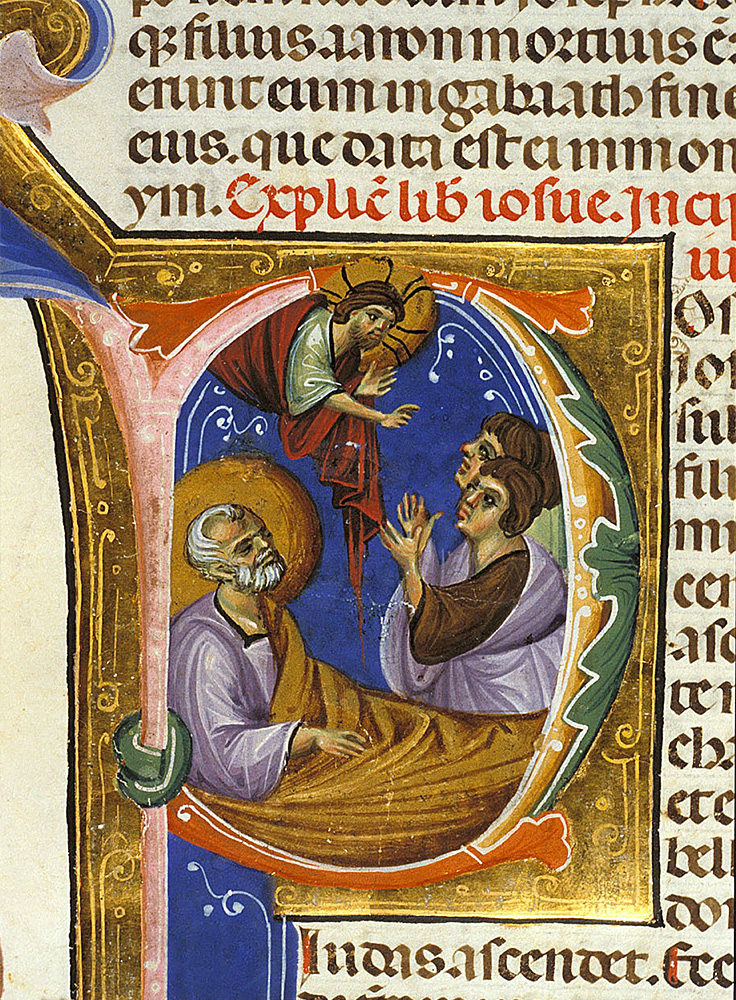 q; filius aaron mortuus ē
erunt eum in gabaath fine
eius. que data est ei in mon
Explic̄ lib iosue. Incip
Os
ios
sul
fili
cen
asc
te n
cha
et e
bell
do
Iudas ascendet. Ecc